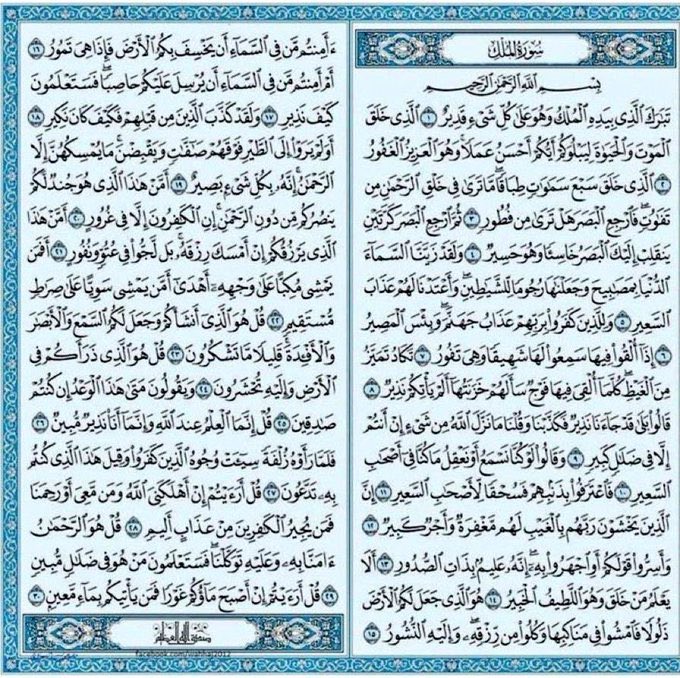 سُورَةُ الْمُلْكِ
بِسْمِ اللَّهِ الرَّحْمَٰنِ الرَّحِيمِ
تَبَٰرَكَ ٱلَّذِى بِيَدِهِ ٱلْمُلْكُ وَهُوَ عَلَىٰ كُلِّ شَىْءٍ قَدِيرٌ ١ ٱلَّذِى خَلَقَ
ٱلْمَوْتَ وَٱلْحَيَوٰةَ لِيَبْلُوَكُمْ أَيُّكُمْ أَحْسَنُ عَمَلًا وَهُوَ ٱلْعَزِيزُ ٱلْغَفُورُ
٢ ٱلَّذِى خَلَقَ سَبْعَ سَمَٰوَٰتٍ طِبَاقًا مَّا تَرَىٰ فِى خَلْقِ ٱلرَّحْمَٰنِ مِن
تَفَٰوُتٍ فَٱرْجِعِ ٱلْبَصَرَ هَلْ تَرَىٰ مِن فُطُورٍ ٣ ثُمَّ ٱرْجِعِ ٱلْبَصَرَ كَرَّتَيْنِ
يَنقَلِبْ إِلَيْكَ ٱلْبَصَرُ خَاسِئًا وَهُوَ حَسِيرٌ ٤ وَلَقَدْ زَيَّنَّا ٱلسَّمَآءَ
ٱلدُّنْيَا بِمَصَٰبِيحَ وَجَعَلْنَٰهَا رُجُومًا لِّلشَّيَٰطِينِ وَأَعْتَدْنَا لَهُمْ عَذَابَ
ٱلسَّعِيرِ ٥ وَلِلَّذِينَ كَفَرُوا۟ بِرَبِّهِمْ عَذَابُ جَهَنَّمَ وَبِئْسَ ٱلْمَصِيرُ
٦ إِذَآ أُلْقُوا۟ فِيهَا سَمِعُوا۟ لَهَا شَهِيقًا وَهِىَ تَفُورُ ٧ تَكَادُ تَمَيَّزُ
مِنَ ٱلْغَيْظِ كُلَّمَآ أُلْقِىَ فِيهَا فَوْجٌ سَأَلَهُمْ خَزَنَتُهَآ أَلَمْ يَأْتِكُمْ نَذِيرٌ ٨
قَالُوا۟ بَلَىٰ قَدْ جَآءَنَا نَذِيرٌ فَكَذَّبْنَا وَقُلْنَا مَا نَزَّلَ ٱللَّهُ مِن شَىْءٍ إِنْ أَنتُمْ
إِلَّا فِى ضَلَٰلٍ كَبِيرٍ ٩ وَقَالُوا۟ لَوْ كُنَّا نَسْمَعُ أَوْ نَعْقِلُ مَا كُنَّا فِىٓ أَصْحَٰبِ
ٱلسَّعِيرِ ١٠ فَٱعْتَرَفُوا۟ بِذَنۢبِهِمْ فَسُحْقًا لِّأَصْحَٰبِ ٱلسَّعِيرِ ١١ إِنَّ
ٱلَّذِينَ يَخْشَوْنَ رَبَّهُم بِٱلْغَيْبِ لَهُم مَّغْفِرَةٌ وَأَجْرٌ كَبِيرٌ ١٢
وَأَسِرُّوا۟ قَوْلَكُمْ أَوِ ٱجْهَرُوا۟ بِهِۦٓ إِنَّهُۥ عَلِيمٌۢ بِذَاتِ ٱلصُّدُورِ ١٣ أَلَا
يَعْلَمُ مَنْ خَلَقَ وَهُوَ ٱللَّطِيفُ ٱلْخَبِيرُ ١٤ هُوَ ٱلَّذِى جَعَلَ لَكُمُ ٱلْأَرْضَ
ذَلُولًا فَٱمْشُوا۟ فِى مَنَاكِبِهَا وَكُلُوا۟ مِن رِّزْقِهِۦ وَإِلَيْهِ ٱلنُّشُورُ ١٥
ءَأَمِنتُم مَّن فِى ٱلسَّمَآءِ أَن يَخْسِفَ بِكُمُ ٱلْأَرْضَ فَإِذَا هِىَ تَمُورُ ١٦
أَمْ أَمِنتُم مَّن فِى ٱلسَّمَآءِ أَن يُرْسِلَ عَلَيْكُمْ حَاصِبًا فَسَتَعْلَمُونَ
كَيْفَ نَذِيرِ ١٧ وَلَقَدْ كَذَّبَ ٱلَّذِينَ مِن قَبْلِهِمْ فَكَيْفَ كَانَ نَكِيرِ ١٨
أَوَلَمْ يَرَوْا۟ إِلَى ٱلطَّيْرِ فَوْقَهُمْ صَٰٓفَّٰتٍ وَيَقْبِضْنَ مَا يُمْسِكُهُنَّ إِلَّا
ٱلرَّحْمَٰنُ إِنَّهُۥ بِكُلِّ شَىْءٍۭ بَصِيرٌ ١٩ أَمَّنْ هَٰذَا ٱلَّذِى هُوَ جُندٌ لَّكُمْ
يَنصُرُكُم مِّن دُونِ ٱلرَّحْمَٰنِ إِنِ ٱلْكَٰفِرُونَ إِلَّا فِى غُرُورٍ ٢٠ أَمَّنْ هَٰذَا
ٱلَّذِى يَرْزُقُكُمْ إِنْ أَمْسَكَ رِزْقَهُۥ بَل لَّجُّوا۟ فِى عُتُوٍّ وَنُفُورٍ ٢١ أَفَمَن
يَمْشِى مُكِبًّا عَلَىٰ وَجْهِهِۦٓ أَهْدَىٰٓ أَمَّن يَمْشِى سَوِيًّا عَلَىٰ صِرَٰطٍ
مُّسْتَقِيمٍ ٢٢ قُلْ هُوَ ٱلَّذِىٓ أَنشَأَكُمْ وَجَعَلَ لَكُمُ ٱلسَّمْعَ وَٱلْأَبْصَٰرَ
وَٱلْأَفْـِٔدَةَ قَلِيلًا مَّا تَشْكُرُونَ ٢٣ قُلْ هُوَ ٱلَّذِى ذَرَأَكُمْ فِى
ٱلْأَرْضِ وَإِلَيْهِ تُحْشَرُونَ ٢٤ وَيَقُولُونَ مَتَىٰ هَٰذَا ٱلْوَعْدُ إِن كُنتُمْ
صَٰدِقِينَ ٢٥ قُلْ إِنَّمَا ٱلْعِلْمُ عِندَ ٱللَّهِ وَإِنَّمَآ أَنَا۠ نَذِيرٌ مُّبِينٌ ٢٦
فَلَمَّا رَأَوْهُ زُلْفَةً سِيٓـَٔتْ وُجُوهُ ٱلَّذِينَ كَفَرُوا۟ وَقِيلَ هَٰذَا ٱلَّذِى كُنتُم
بِهِۦ تَدَّعُونَ ٢٧ قُلْ أَرَءَيْتُمْ إِنْ أَهْلَكَنِىَ ٱللَّهُ وَمَن مَّعِىَ أَوْ رَحِمَنَا
فَمَن يُجِيرُ ٱلْكَٰفِرِينَ مِنْ عَذَابٍ أَلِيمٍ ٢٨ قُلْ هُوَ ٱلرَّحْمَٰنُ
ءَامَنَّا بِهِۦ وَعَلَيْهِ تَوَكَّلْنَا فَسَتَعْلَمُونَ مَنْ هُوَ فِى ضَلَٰلٍ مُّبِينٍ
٢٩ قُلْ أَرَءَيْتُمْ إِنْ أَصْبَحَ مَآؤُكُمْ غَوْرًا فَمَن يَأْتِيكُم بِمَآءٍ مَّعِينٍۭ ٣٠
صدق الله العظيم
facebook.com/wahhaj2012